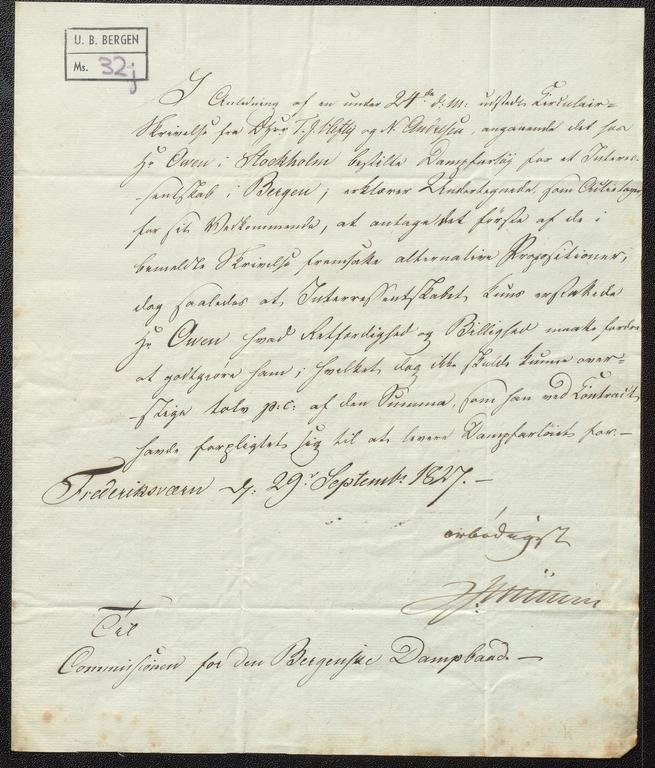 U. B. BERGEN
Ms. 32j
I Anledning af en under 24de d: M: udstedt Circulair-
Skrivelse fra DHrr T. J. Hefty og N. Andresen, angaaende det hos
Hr Owen i Stockholm bestilte Dampfartøj for et Interes-
sentskab i Bergen; erklærer Undertegnede, som Actietager
for sit Vedkommende, at antage det første af de i
bemeldte Skrivelse fremsatte alternative Propositioner,
dog saaledes at Interressentskabet kuns erstattede
Hr Owen hvad Retfærdighed og Billighed maatte fordre
at godtgjøre ham; hvilket dog ikke skulde kunne over-
stige tolv p.C: af den Summa, som han ved Contract
havde forpligtet sig til at levere Dampfartøiet for.—
Frederiksværn d: 29r Septembr 1827.—
ærbødigst
Til
Commissionen for den Bergenske Dampbaad.—